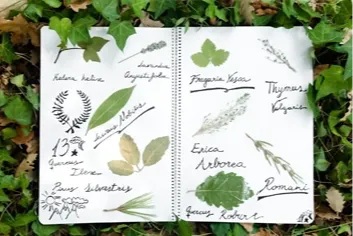 Hedera helix
Lavandula
Angustifolia
Laurus Nobilis
13
Quercus
Ilex
Pinus Silvestris
Fragaria Vesca
Thymus
Vulgaris
Erica
Arborea
Romani
Quercus Robur